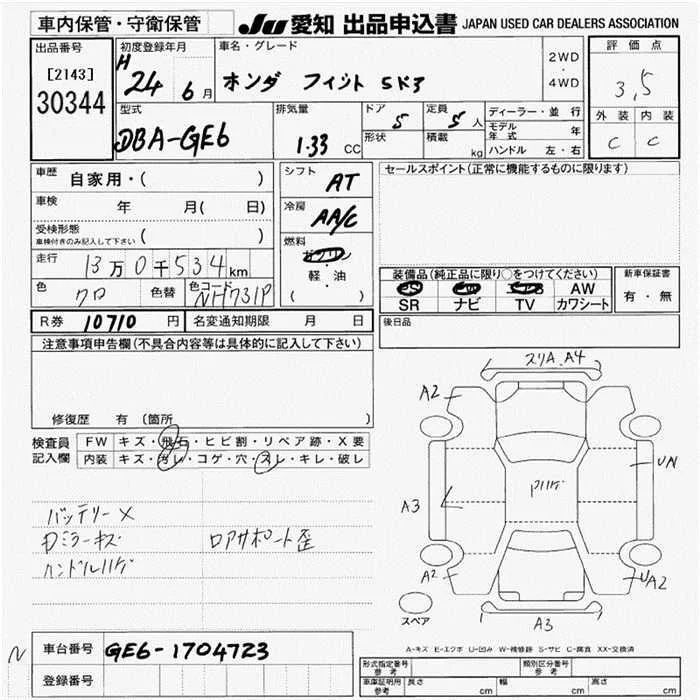 車内保管・守衛保管
JU 愛知 出品申込書 JAPAN USED CAR DEALERS ASSOCIATION
出品番号
[2143]
30344
初度登録年月
H 24 6 月
車名・グレード
ホンダ フィット 5ドア
2WD
・
4WD
評価点
3,5
外装 内装
C C
型式
DBA-GE6
排気量
1.33 CC
ドア
5
形状
定員
5 人
積載
kg
ディーラー・並行
モデル年式 年
ハンドル 左・右
車歴
自家用・( )
車検
年 月( 日)
受検形態
車検付きのみ記入して下さい ( )
走行
13万0千534km
色
クロ
色替
色コード
NH731P
シフト
AT
冷房
AA/C
燃料
ガソリン
・
軽・油
( )
セールスポイント(正常に機能するものに限ります)
装備品(純正品に限り○をつけてください)
PS PW エアB AW
SR ナビ TV カワシート
新車保証書
有・無
後日品
R券 10710 円 名変通知期限 月 日
注意事項申告欄(不具合内容等は具体的に記入して下さい)
修復歴 有 (箇所 )
検査員
記入欄
FW キズ・飛石・ヒビ割・リペア跡・X要
内装 キズ・汚レ・コゲ・穴・スレ・キレ・破レ
バッテリーX
Dミラーキズ ロアサポート歪
ハンドルハゲ
スリA、A4
A2
UN
Pハゲ
A3
A2
UA2
A3
スペア
A-キズ E-エクボ U-凹み W-補修跡 S-サビ C-腐食 XX-交換済
N
車台番号
GE6-1704723
登録番号
形式指定番号
参考
類別区分番号
参考
車庫証明用
参考
長さ cm 幅 cm 高さ cm